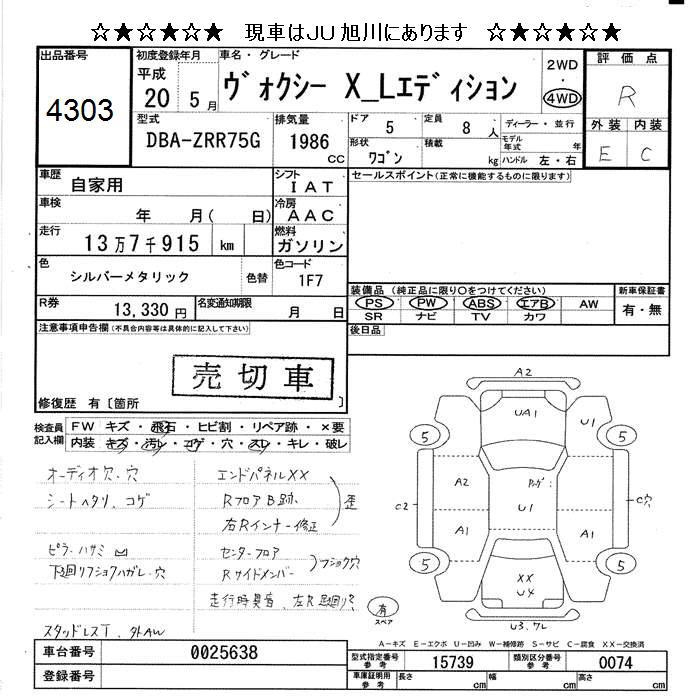 ☆★☆★☆★☆ 現車はJU旭川にあります ☆★☆★☆★☆
出品番号
4303
初度登録年月
平成
20 5月
車名・グレード
ヴォクシー X_Lエディション
2WD
・
4WD
評価点
R
外装 内装
E C
型式
DBA-ZRR75G
排気量
1986
cc
ドア
5
定員
8人
ディーラー・並行
形状
ワゴン
積載
kg
モデル年式
年
ハンドル 左・右
車歴
自家用
シフト
IAT
セールスポイント(正常に機能するものに限ります)
車検
年 月( 日)
冷房
AAC
走行
13万7千915 km
燃料
ガソリン
色
シルバーメタリック
色替
色コード
1F7
装備品 (純正品に限り○をつけてください)
PS PW ABS エアB AW
SR ナビ TV カワ
新車保証書
有・無
R券
13,330円
名変通知期限
月 日
後日品
注意事項申告欄(不具合内容等は具体的に記入して下さい)
売切車
修復歴 有〔箇所 〕
検査員記入欄
FW キズ・飛石・ヒビ割・リペア跡・×要
内装 キズ・汚レ・コゲ・穴・スレ・キレ・破レ
オーディオ欠、穴
シートヘタリ、コゲ
ピラーハサミ凹
下廻リフショクハガレ、穴
スタッドレスT、外AW
エンドパネルXX
RフロアB跡
右Rインナー修正
歪
センターフロア
Rサイドメンバー
フショク穴
走行時異音、左R足廻り?
有
スペア
A2
UA1
U1
5
5
A2
C2
U1
C穴
A1
A1
5
5
XX
U4
U3、ワレ
A-キズ E-エクボ U-凹み W-補修跡 S-サビ C-腐食 XX-交換済
車台番号
0025638
登録番号
型式指定番号
参考
15739
類別区分番号
参考
0074
車庫証明用
参考
長さ
cm
幅
cm
高さ
cm